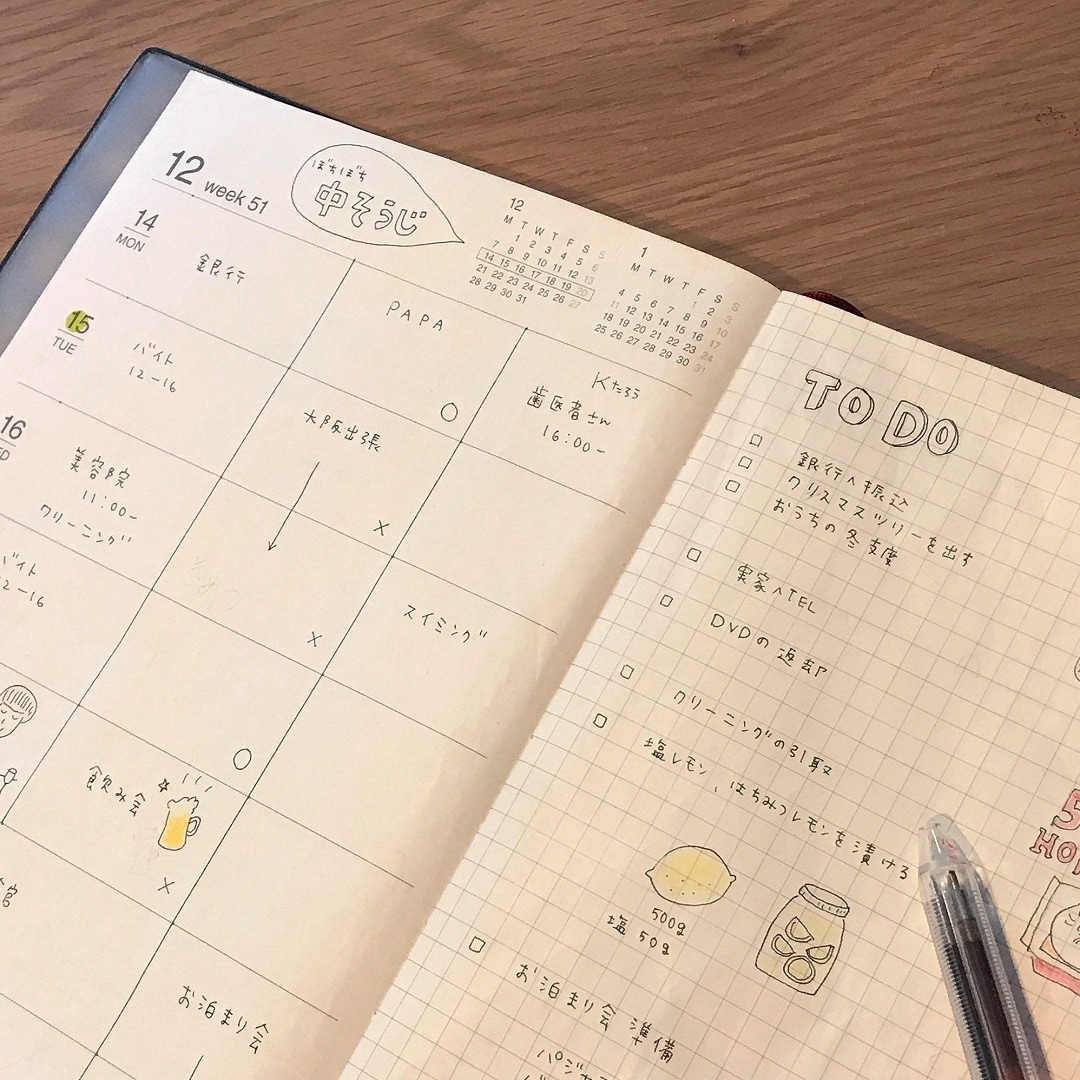 12 week 51
ぼちぼち
中そうじ
12
M T W T F S S
1 2 3 4 5 6
7 8 9 10 11 12 13
14 15 16 17 18 19 20
21 22 23 24 25 26 27
28 29 30 31
1
M T W T F S S
1 2 3
4 5 6 7 8 9 10
11 12 13 14 15 16 17
18 19 20 21 22 23 24
25 26 27 28 29 30 31
14
MON
銀行
PAPA
Kたろう
歯医者さん
16:00-
15
TUE
バイト
12-16
大阪出張
16
美容院
11:00-
クリーニング
スイミング
バイト
12-16
飲み会
お泊まり会
TO DO
銀行へ振込
クリスマスツリーを出す
おうちの冬支度
実家へTEL
DVDの返却
クリーニングの引取
塩レモン、はちみつレモンを漬ける
500g
塩 50g
お泊まり会 準備